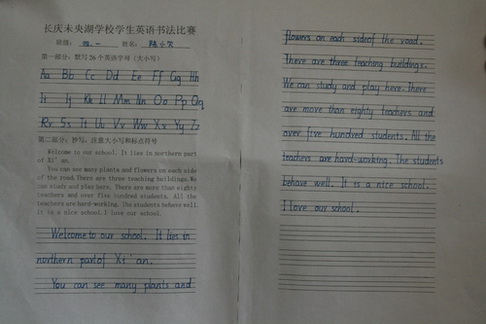 长庆未央湖学校学生英语书法比赛
班级： 一 姓名：
第一部分：默写26个英语字母（大小写）
Aa Bb Cc Dd Ee Ff Gg Hh
Ii Jj Kk Ll Mm Nn Oo Pp Qq
Rr Ss Tt Uu Vv Ww Xx Yy Zz
第二部分：抄写，注意大小写和标点符号
Welcome to our school. It lies in northern part
of Xi' an.
You can see many plants and flowers on each side
of the road.There are three teaching buildings.We
can study and play here. There are more than eighty
teachers and over five hundred students. All the
teachers are hard-working. The students behave well.
it is a nice school.I love our school.
Welcome to our school. It lies in
northern part of Xi' an.
You can see many plants and
flowers on each side of the road.
There are three teaching buildings.
We can study and play here. There
are more than eighty teachers and
over five hundred students. All the
teachers are hard-working. The students
behave well. It is a nice school.
I love our school.